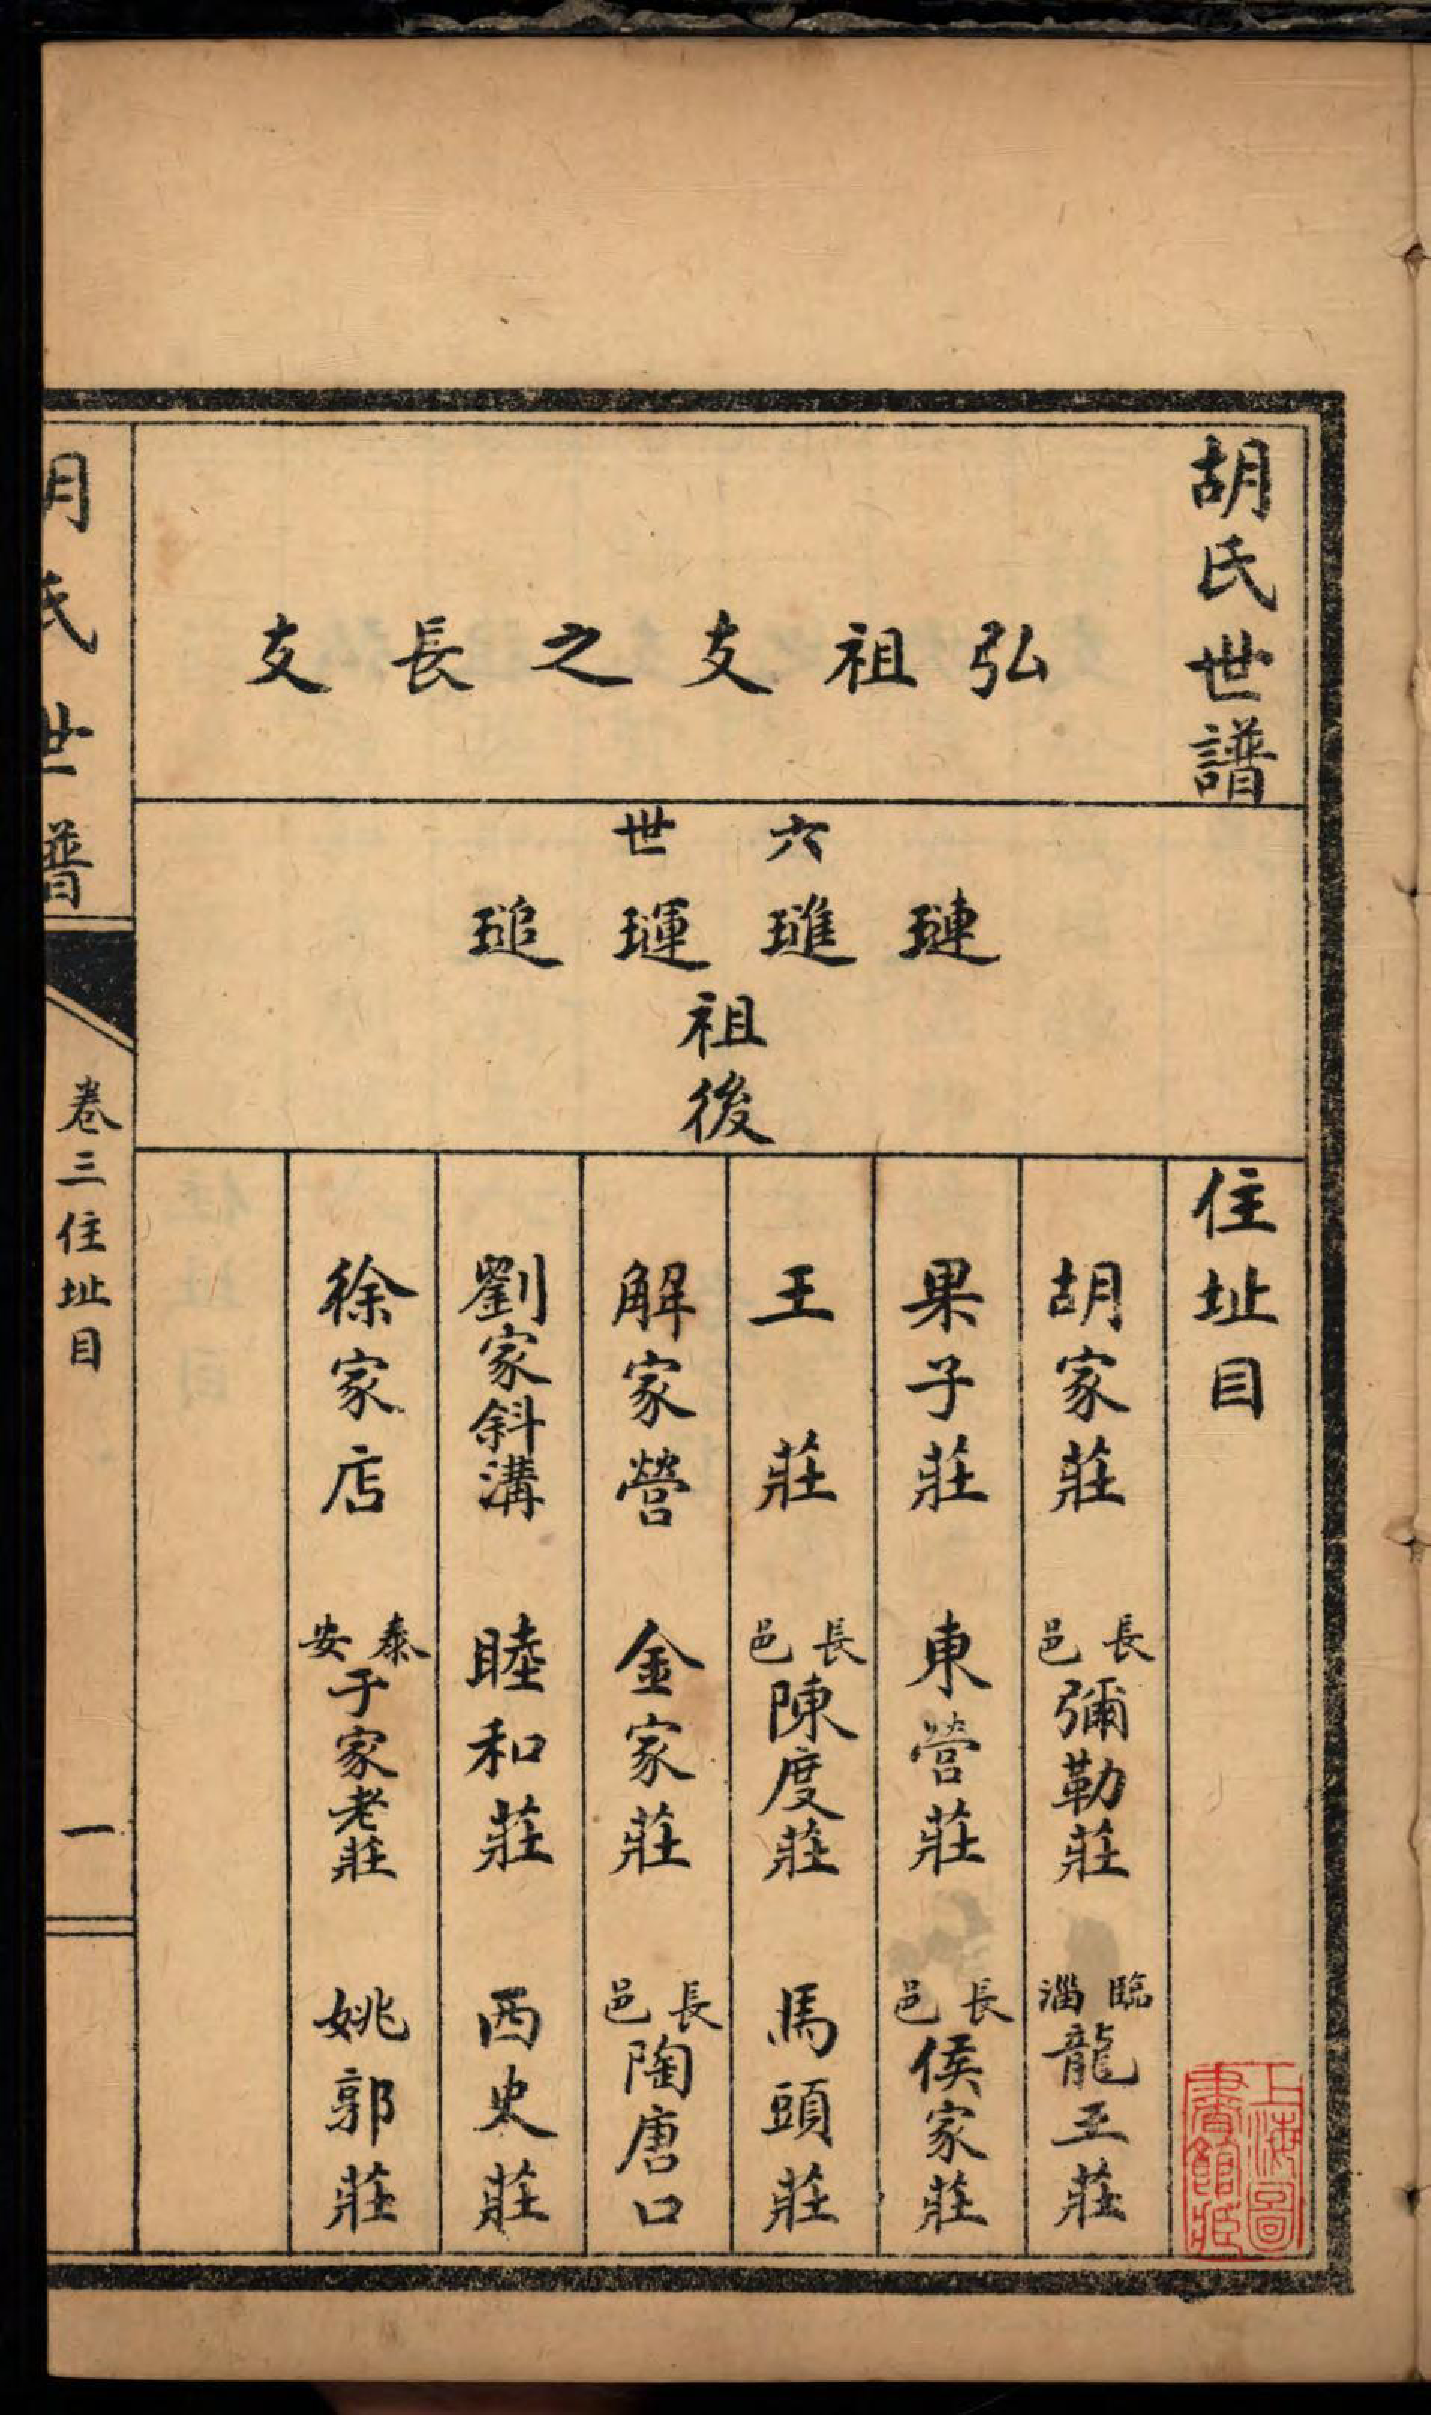 胡氏世譜
住址目
弘祖支之長支
六世
璉璡𤨒瑝
祖後
胡家莊 長邑彌勒莊 臨淄龍王莊
果子莊 東營莊 長邑侯家莊
王莊 長邑陳度莊 馬頭莊
解家營 金家莊 長邑陶唐口
劉家斜溝 睦和莊 西史莊
徐家店 泰安于家老莊 姚郭莊
胡氏世譜
卷三住址目
一
上海圖書館藏